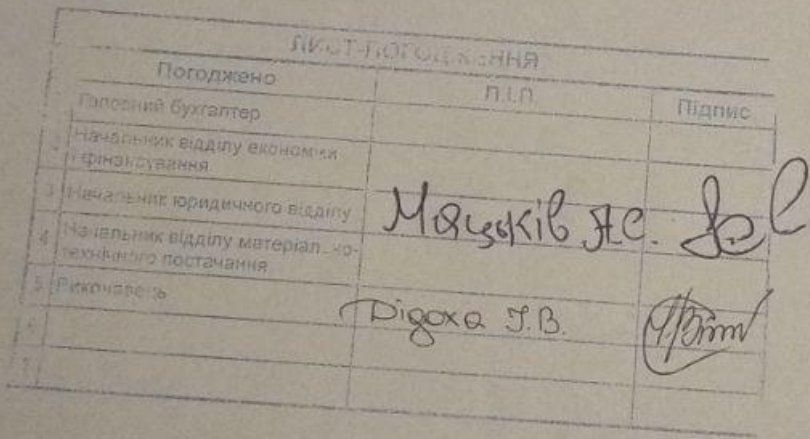 ЛИСТ-ПОГОДЖЕННЯ
Погоджено П.І.П. Підпис
Головний бухгалтер
Начальник відділу економіки
і фінансування
3 Начальник юридичного відділу Мацьків А.С.
4 Начальник відділу матеріально-
технічного постачання
5 Виконавець Дідоха І.В.
6
7